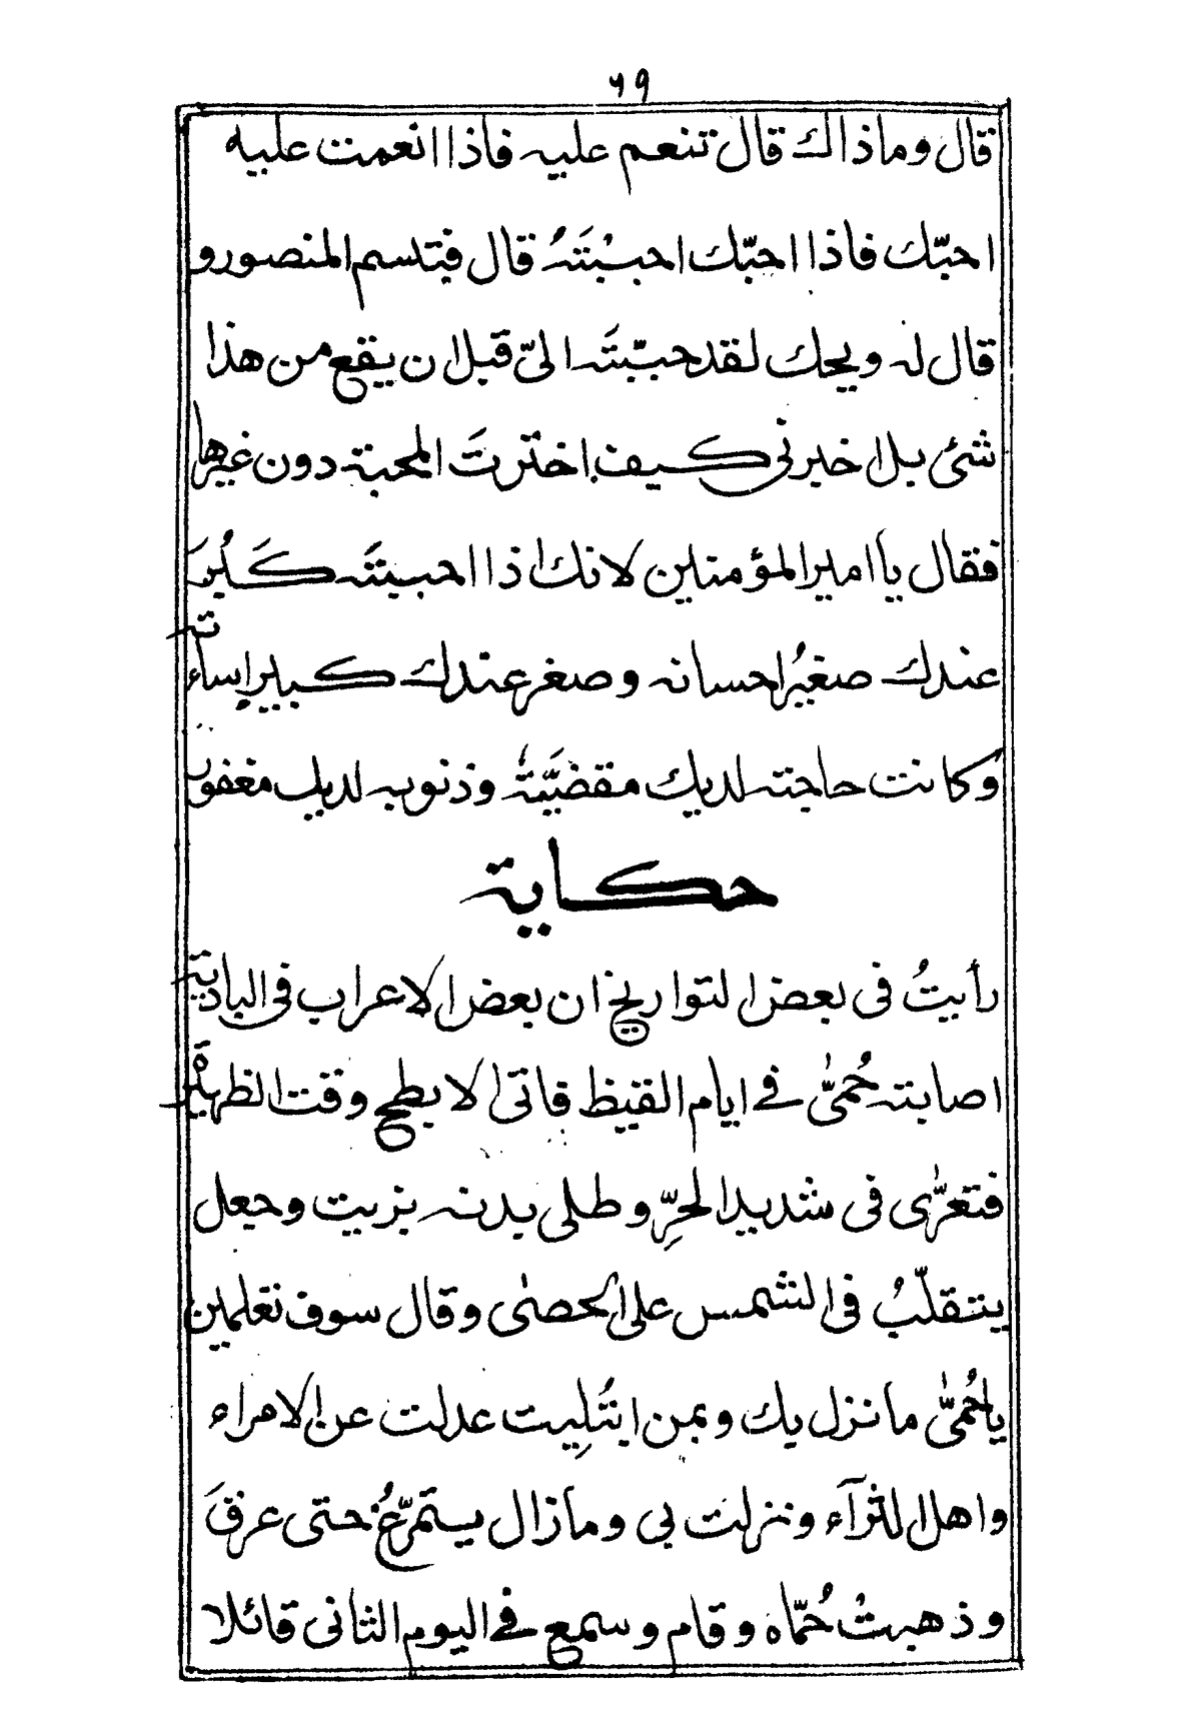 ٦٩
قال وماذاك قال تنعم عليه فاذا انعمت عليه
احبّك فاذا احبّك احببْتَهُ قال فتبسم المنصورو
قال له ويحك لقد حببّتَه الىّ قبل ان يقع من هذا
شئ بل اخبرنى كيف اخترتَ المحبة دون غيرها
فقال يا امير المؤمنين لانك اذا احببتَه كَبُرَ
عندك صغيُر احسانه وصغر عندك كبير إساءته
وكانت حاجته لديك مقضيَّةً وذنوبه لديك مغفور
حكاية
رأيتُ فى بعض التواريخ ان بعض الاعراب فى البادية
اصابته حُمىّٰ فے ايام القيظ فاتى الابطح وقت الظهيرة
فتعرّٰى فى شديد الحرِّ وطلى بدنه بزيت وجعل
يتقلّبُ فى الشمس على الحصىٰ وقال سوف تعلمين
ياحُمىّٰ مانزل بك وبمن ابتُلِيت عدلت عن الامراء
واهل الثرآء ونزلت بى ومازال يتمرّغُ حتى عرقَ
وذهبتْ حُمّاه وقام وسمع فے اليوم الثانى قائلا